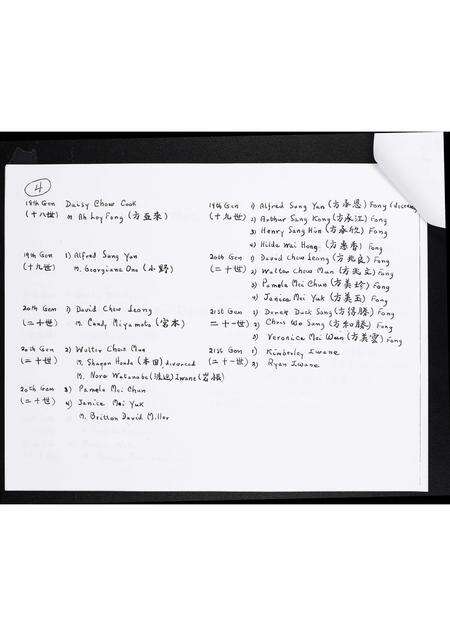 4
18th Gen Daisy Chow Cook
(十八世) m Ah Loy Fong (方亚来)
19th Gen 1) Alfred Sung Yan (方承恩) Fong
(十九世) 2) Arthur Sung Kong (方承江) Fong
3) Henry Sung Hin (方承欣) Fong
4) Hilda Wai Hong (方惠香) Fong
19th Gen 1) Alfred Sung Yan
(十九世) m. Georgiana Ono (小野)
20th Gen 1) David Chew Leong (方兆良) Fong
(二十世) 2) Walter Chow Mun (方兆文) Fong
3) Pamela Mei Chun (方美珍) Fong
4) Janice Mei Yuk (方美玉) Fong
20th Gen 1) David Chew Leong
(二十世) m. Candy Miyamoto (宮本)
21st Gen 1) Derek Duck Sang (方得勝) Fong
(二十一世) 2) Chris Wo Sang (方和勝) Fong
3) Veronica Mei Wan (方美雲) Fong
20th Gen 2) Walter Chow Mun
(二十世) m. Sharon Honda (本田) divorced
m. Nora Watanabe (渡辺) Iwane (岩根)
21st Gen 1) Kimberley Iwane
(二十一世) 2) Ryan Iwane
20th Gen 3) Pamela Mei Chun
(二十世) 4) Janice Mei Yuk
m. Britton David Miller